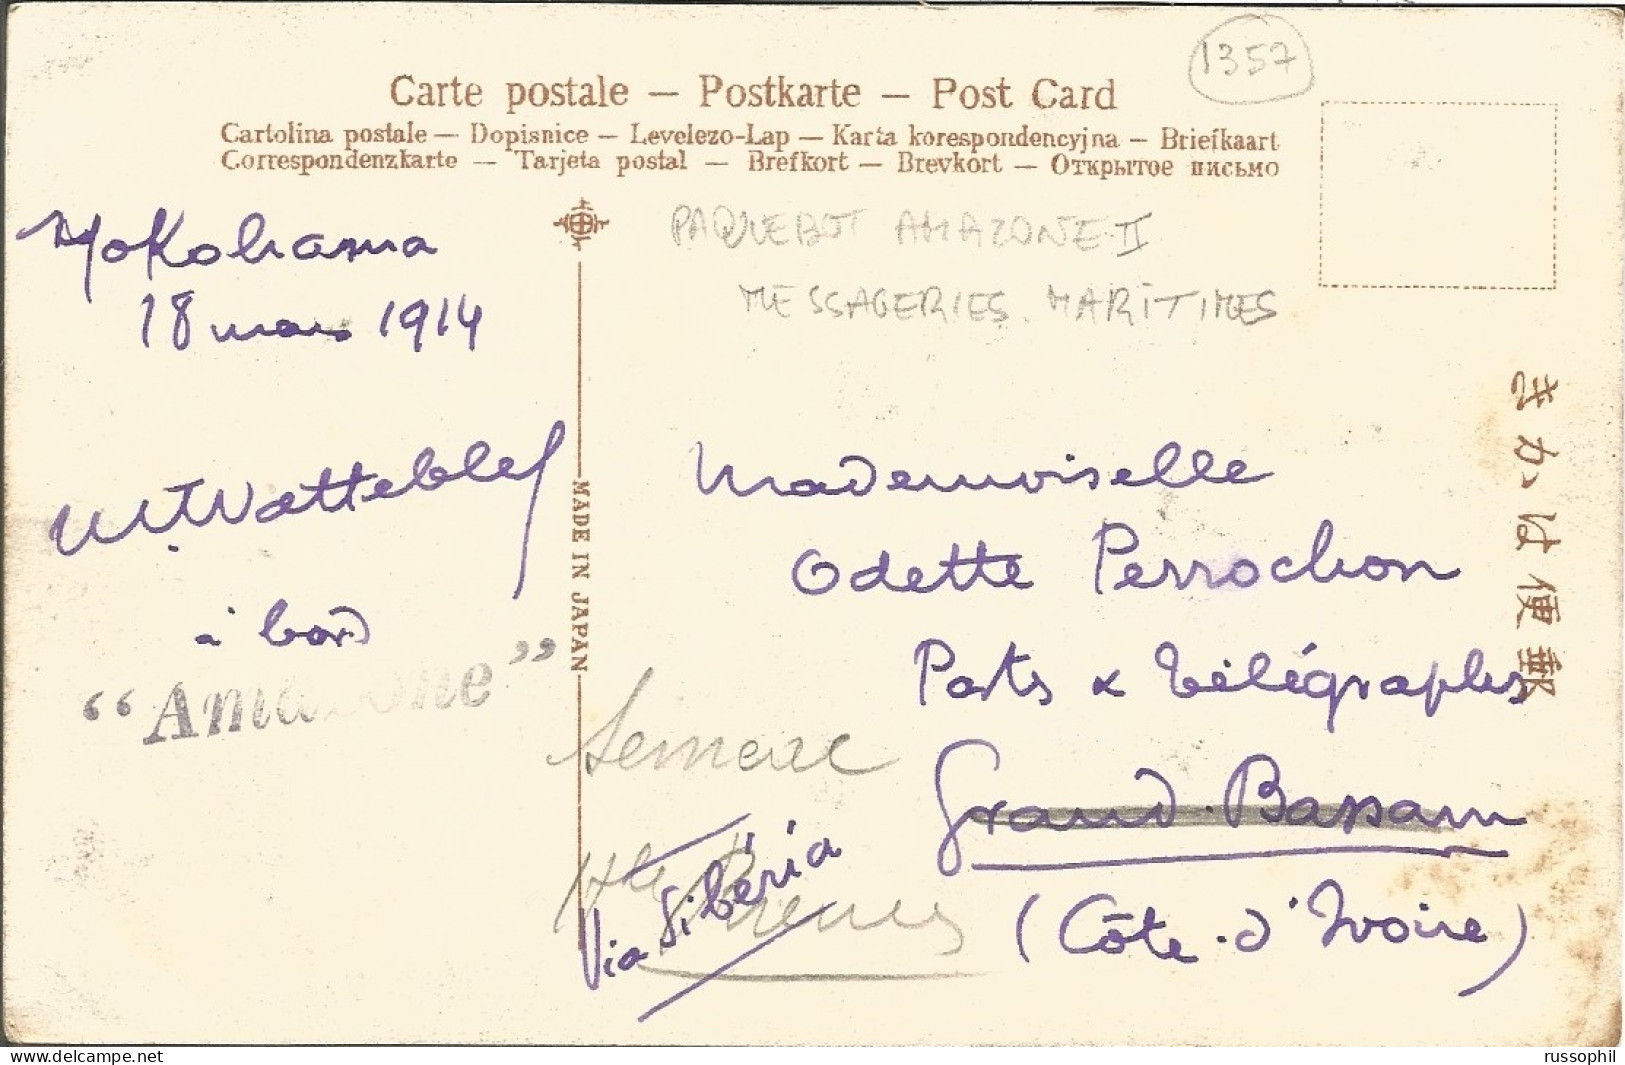 1357
Carte postale — Postkarte — Post Card
Cartolina postale — Dopisnice — Levelezo-Lap — Karta korespondencyjna — Briefkaart
Correspondenzkarte — Tarjeta postal — Brefkort — Brevkort — Открытое письмо
PAQUEBOT AMAZONE II
MESSAGERIES MARITIMES
Yokohama
18 mars 1914
à bord
“Amazone”
MADE IN JAPAN
きかは便郵
Mademoiselle
Odette Perrochon
Posts & Télégraphes
Grand-Bassam
(Côte-d'Ivoire)
Via Sibéria
www.delcampe.net
russophil